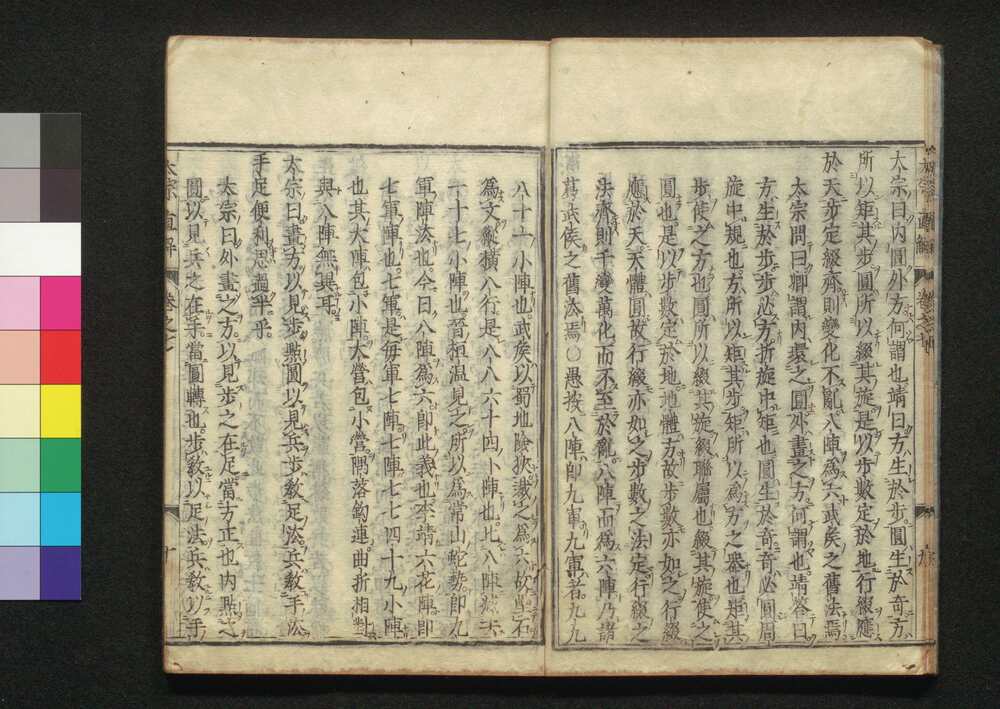 太宗曰内圓外方何謂也靖曰方生於步圓生於奇方
所以矩其步圓所以綴其旋是以步數定於地行綴應
於天步定綴齊則變化不亂八陣爲六武矦之舊法焉
太宗問曰卿謂内環之圓外畫之方何謂也靖答曰
方生於步步必方折旋中矩也圓生於奇奇必圓周
旋中規也方所以矩其步矩所以爲方之噐也矩其
步使之方也圓所以綴其旋綴聯屬也綴其旋使之
圓也是以步數定於地地體方故步數亦如之行綴
應於天天體圓故行綴亦如之步數之法定行綴之
法齊則千變萬化而不至於亂八陣而爲六陣乃諸
葛武矦之舊法焉○愚按八陣即九軍九軍者九九
八十一小陣也武矦以蜀地險狹裁之爲六故壘石
爲文縱横八行是八八六十四小陣也比八陣
二十七小陣也晉桓温見之所以爲常山蛇勢即九
軍陣法也今日八陣爲六即此義也李靖六花陣即
七軍陣也七軍是每軍七陣七七四十九小陣
也其大陣包小陣大營包小營隅落鈎連曲折相對
與八陣無異耳
太宗曰畫方以見步點圓以見兵步教足法兵教手法
手足便利思過半乎
太宗曰外畫之方以見步之在足當方正也内點之
圓以見兵之在手當圓轉也步教以足法兵教以手
太宗直解
卷之
十